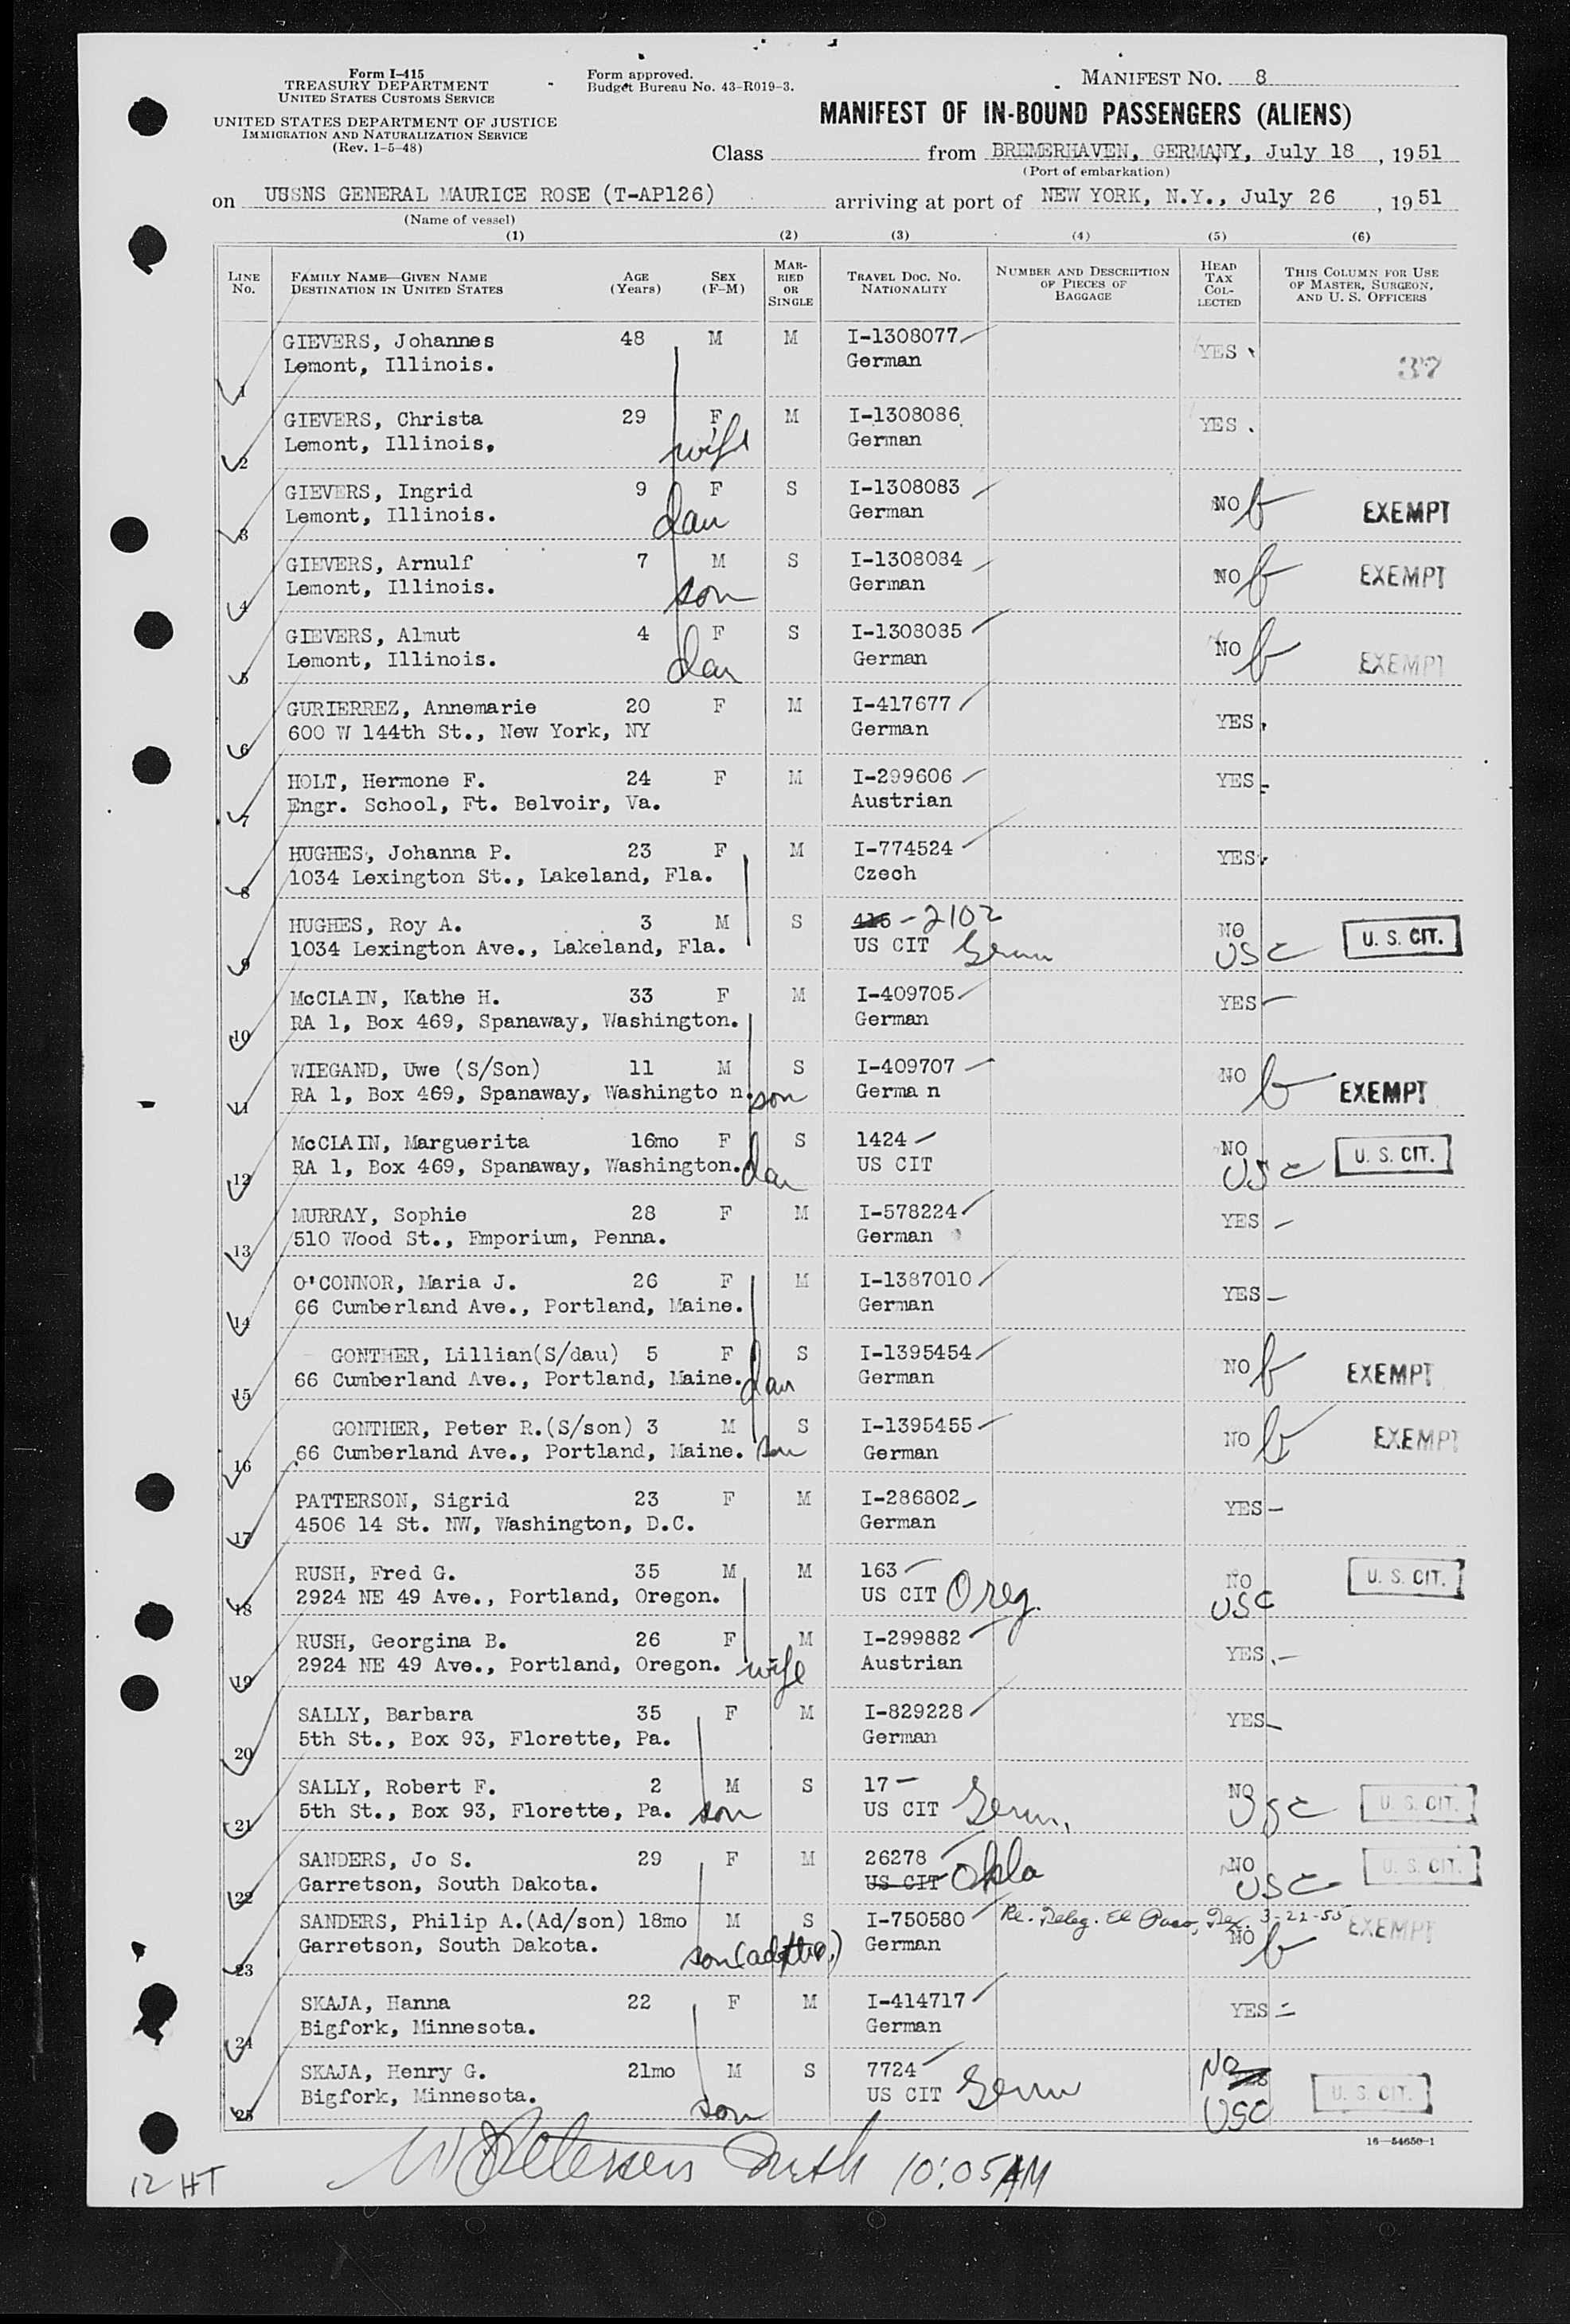 Form I-415
TREASURY DEPARTMENT
UNITED STATES CUSTOMS SERVICE
UNITED STATES DEPARTMENT OF JUSTICE
IMMIGRATION AND NATURALIZATION SERVICE
(Rev. 1-5-48)
Form approved.
Budget Bureau No. 43-R019-3.
MANIFEST NO. 8
MANIFEST OF IN-BOUND PASSENGERS (ALIENS)
Class from BREMERHAVEN, GERMANY, July 18, 1951
(Port of embarkation)
on USSNS GENERAL MAURICE ROSE (T-AP126) arriving at port of NEW YORK, N.Y., July 26, 1951
(Name of vessel)
(1) (2) (3) (4) (5) (6)
LINE NO. FAMILY NAME—GIVEN NAME DESTINATION IN UNITED STATES AGE (Years) SEX (F-M) MARRIED OR SINGLE TRAVEL DOC. NO. NATIONALITY NUMBER AND DESCRIPTION OF PIECES OF BAGGAGE HEAD TAX COLLECTED THIS COLUMN FOR USE OF MASTER, SURGEON, AND U. S. OFFICERS
GIEVERS, Johannes 48 M M I-1308077 YES
1 Lemont, Illinois. German 37
GIEVERS, Christa 29 F M I-1308086 YES
2 Lemont, Illinois, wife German
GIEVERS, Ingrid 9 F S I-1308083 NO EXEMPT
3 Lemont, Illinois. dau German
GIEVERS, Arnulf 7 M S I-1308084 NO EXEMPT
4 Lemont, Illinois. son German
GIEVERS, Almut 4 F S I-1308085 NO EXEMPT
5 Lemont, Illinois. dau German
GURIERREZ, Annemarie 20 F M I-417677 YES
6 600 W 144th St., New York, NY German
HOLT, Hermone F. 24 F M I-299606 YES
7 Engr. School, Ft. Belvoir, Va. Austrian
HUGHES, Johanna P. 23 F M I-774524 YES
8 1034 Lexington St., Lakeland, Fla. Czech
HUGHES, Roy A. 3 M S 415 - 2102 NO U. S. CIT.
9 1034 Lexington Ave., Lakeland, Fla. US CIT Germ USC
McCLAIN, Kathe H. 33 F M I-409705 YES
10 RA 1, Box 469, Spanaway, Washington. German
WIEGAND, Uwe (S/Son) 11 M S I-409707 NO EXEMPT
11 RA 1, Box 469, Spanaway, Washingto n. son Germa n
McCLAIN, Marguerita 16mo F S 1424 NO U. S. CIT.
12 RA 1, Box 469, Spanaway, Washington. dau US CIT USC
MURRAY, Sophie 28 F M I-578224 YES
13 510 Wood St., Emporium, Penna. German
O'CONNOR, Maria J. 26 F M I-1387010 YES
14 66 Cumberland Ave., Portland, Maine. German
GONTHER, Lillian(S/dau) 5 F S I-1395454 NO EXEMPT
15 66 Cumberland Ave., Portland, Maine. dau German
GONTHER, Peter R.(S/son) 3 M S I-1395455 NO EXEMPT
16 66 Cumberland Ave., Portland, Maine. son German
PATTERSON, Sigrid 23 F M I-286802 YES
17 4506 14 St. NW, Washington, D.C. German
RUSH, Fred G. 35 M M 163 NO U. S. CIT.
18 2924 NE 49 Ave., Portland, Oregon. US CIT Oreg. USC
RUSH, Georgina B. 26 F M I-299882 YES
19 2924 NE 49 Ave., Portland, Oregon. wife Austrian
SALLY, Barbara 35 F M I-829228 YES
20 5th St., Box 93, Florette, Pa. German
SALLY, Robert F. 2 M S 17 NO U. S. CIT.
21 5th St., Box 93, Florette, Pa. son US CIT Germ. USC
SANDERS, Jo S. 29 F M 26278 NO U. S. CIT.
22 Garretson, South Dakota. US CIT Okla USC
SANDERS, Philip A.(Ad/son) 18mo M S I-750580 Re. Deleg. El Paso, Tex. 3-22-55 EXEMPT
23 Garretson, South Dakota. son (adoptive) German NO
SKAJA, Hanna 22 F M I-414717 YES
24 Bigfork, Minnesota. German
SKAJA, Henry G. 21mo M S 7724 No
25 Bigfork, Minnesota. son US CIT Germ USC U. S. CIT.
16—54650-1
12 HT 10:05 AM